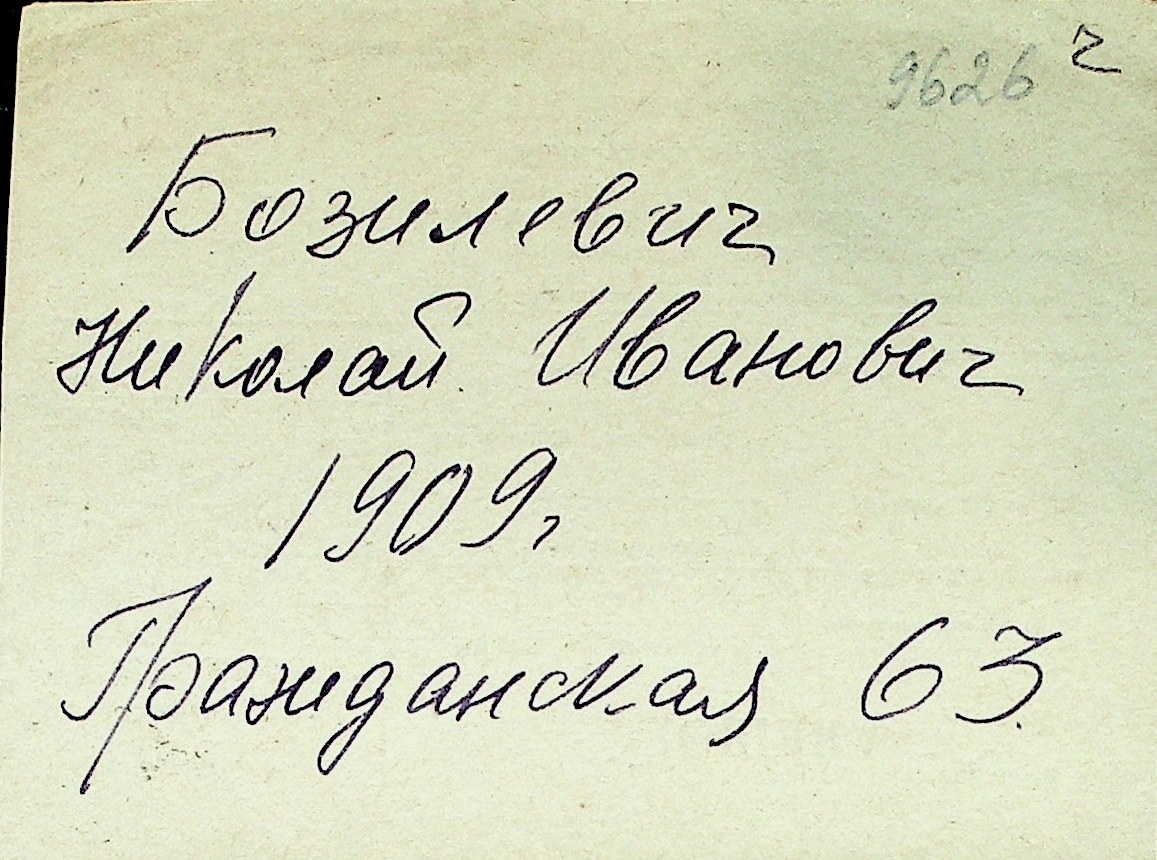 9626 ч
Бозилевич
Николай Иванович
1909г
Гражданская 63